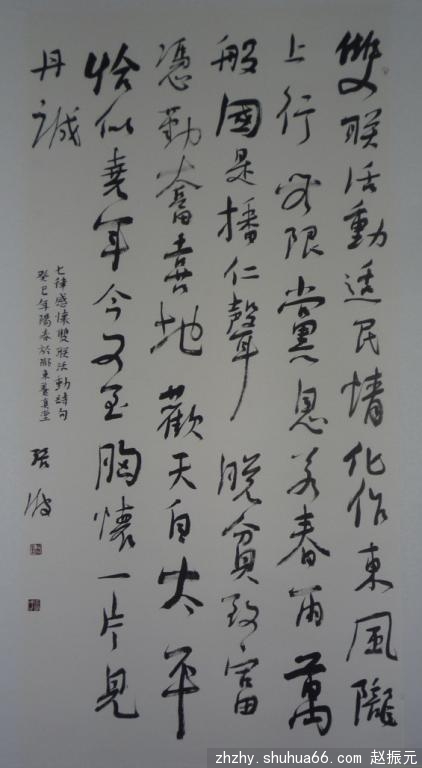 雙联活動民情化作東風隴
上行無限黨恩若春雨萬
般國是播仁聲脱貧致富
憑勤奮喜地歡天自太平
恰似堯年今又至胸懷一片見
丹誠
七律感懷雙联活動詩句
癸巳年陽春於東養真堂
波
zhzhy.shuhua66.com 赵振元